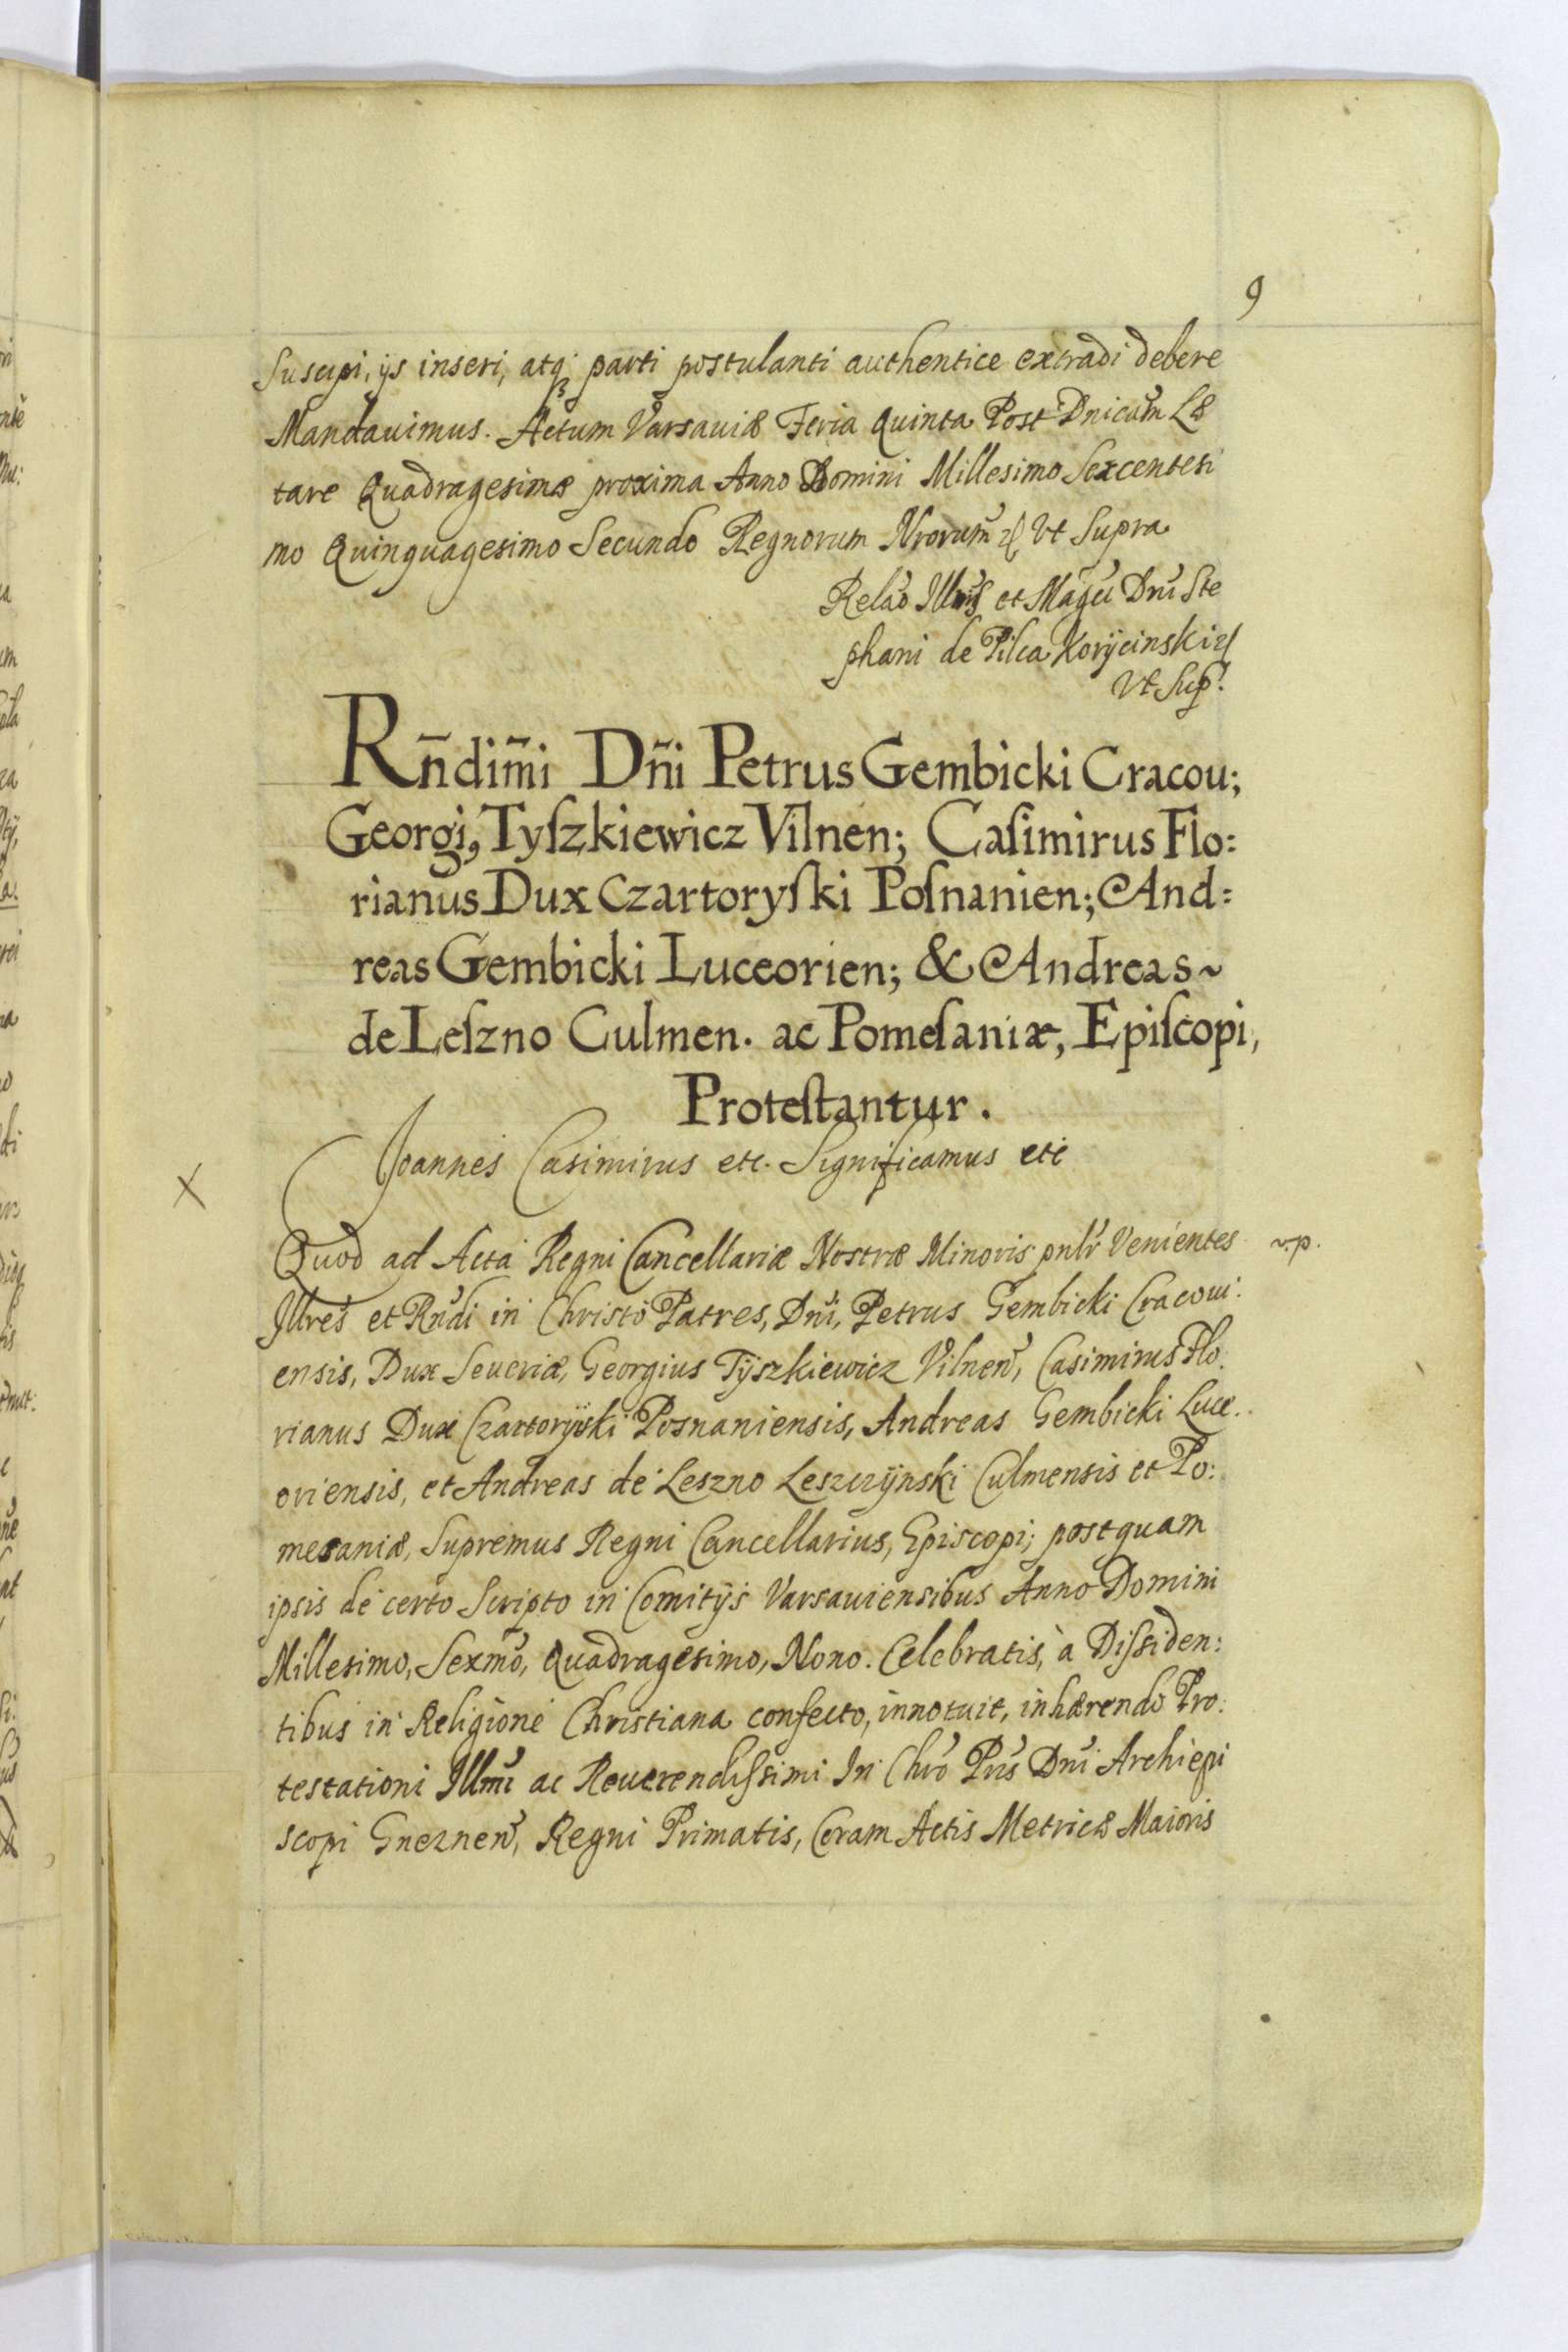 9
Suscipi, ijs inseri, atq; parti postulanti authentice extradi debere
Mandauimus. Actum Varsauiæ Feria Quinta Post Dnicam Læ
tare Quadragesimæ proxima Anno Domini Millesimo Sexcentesi
mo Quinquagesimo Secundo Regnorum Nrorum Vt Supra
Relão Illris et Magci Dni Ste
phani de Pilca Korÿcinski
Vt Sup.
Rñdim̃i Dñi Petrus Gembicki Cracou;
Georgi9 Tyſzkiewicz Vilnen; Caſimirus Flo:
rianus Dux Czartoryſki Poſnanien; And:
reas Gembicki Luceorien; & Andreas ~
de Leſzno Culmen. ac Pomeſaniæ, Epiſcopi,
Proteſtantur.
Joannes Casimirus etc. Significamus etc
X
Quod ad Acta Regni Cancellariæ Nostræ Minoris pnlr Venientes
v.p.
Illres et Rndi in Christo Patres, Dni, Petrus Gembicki Cracoui:
ensis, Dux Seueriæ, Georgius Tÿszkiewicz Vilnen, Casimirus Flo:
rianus Dux Czartorÿski Posnaniensis, Andreas Gembicki Luce:
oriensis, et Andreas de Leszno Leszczÿnski Culmensis et Po:
mesaniæ, Supremus Regni Cancellarius, Episcopi; postquam
ipsis de certo Scripto in Comitÿs Varsauiensibus Anno Domini
Millesimo, Sexmo, Quadragesimo, Nono. Celebratis, à Diſsiden:
tibus in Religione Christiana confecto, innotuit, inhærendo Pro:
testationi Illmi ac Reuerendiſsimi In Chro Pris Dni Archiepi
scopi Gneznen, Regni Primatis, Coram Actis Metricæ Maioris